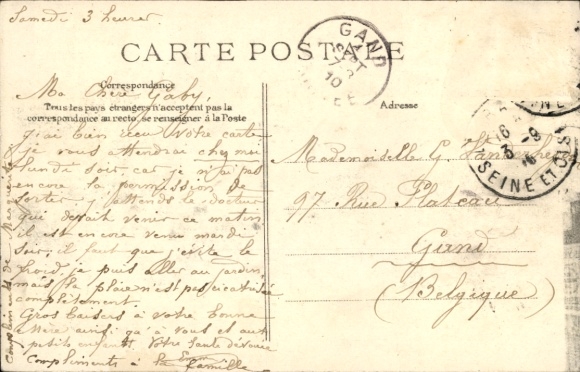 Samedi 3 heures
CARTE POSTALE
Correspondance
Tous les pays étrangers n'acceptent pas la
correspondance au recto, se renseigner à la Poste
Adresse
GAND
SEPT
10
SEINE ET OISE
3 - 9
Ma Chère Gaby,
j'ai bien reçu votre carte
je vous attendrai chez moi
lundi soir, car je n'ai pas
encore la permission de
sortir j'attends le docteur
qui devait venir ce matin
il est encore venu mardi
soir, il faut que j'évite le
froid, je puis aller au jardin
mais la plaie n'est pas cicatrisée
complètement.
Gros baisers à votre bonne
Mère ainsi qu'à vous et aux
petits enfants. Votre toute dévouée
Emma
Compliments à la famille
Compliments de Marguerite
Mademoiselle G.
97 Rue Plateau
Gand
(Belgique)